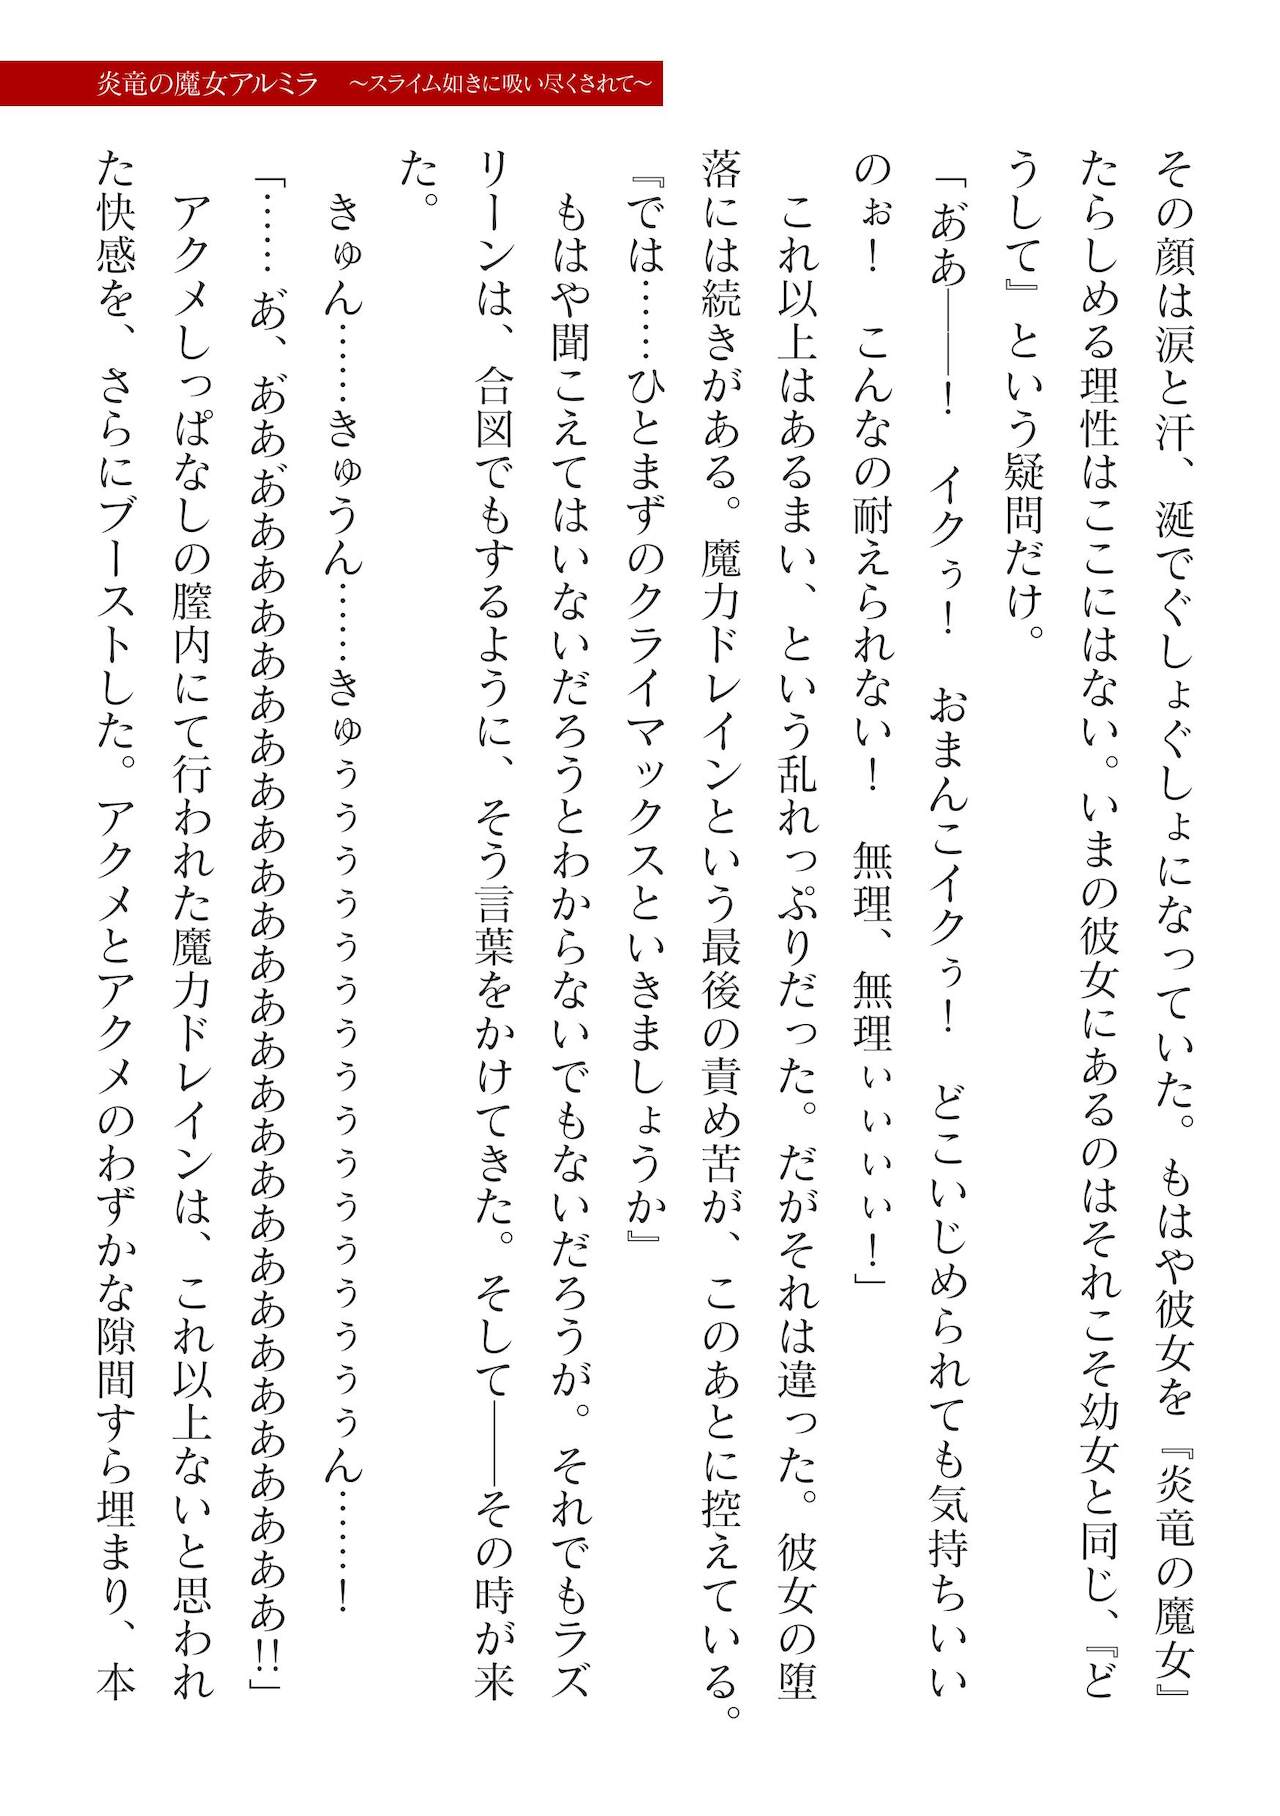 炎竜の魔女アルミラ　～スライム如きに吸い尽くされて～
その顔は涙と汗、涎でぐしょぐしょになっていた。もはや彼女を『炎竜の魔女』
たらしめる理性はここにはない。いまの彼女にあるのはそれこそ幼女と同じ、『ど
うして』という疑問だけ。
「あ゙あ――！　イクぅ！　おまんこイクぅ！　どこいじめられても気持ちいい
のぉ！　こんなの耐えられない！　無理、無理ぃぃぃぃ！」
　これ以上はあるまい、という乱れっぷりだった。だがそれは違った。彼女の堕
落には続きがある。魔力ドレインという最後の責め苦が、このあとに控えている。
『では……ひとまずのクライマックスといきましょうか』
　もはや聞こえてはいないだろうとわからないでもないだろうが。それでもラズ
リーンは、合図でもするように、そう言葉をかけてきた。そして――その時が来
た。
　きゅん……きゅうん……きゅぅぅぅぅぅぅぅぅぅぅぅぅぅぅぅぅん……！
「……あ゙、あ゙あああああああああああああああああああああああああああああ!!」
　アクメしっぱなしの膣内にて行われた魔力ドレインは、これ以上ないと思われ
た快感を、さらにブーストした。アクメとアクメのわずかな隙間すら埋まり、本